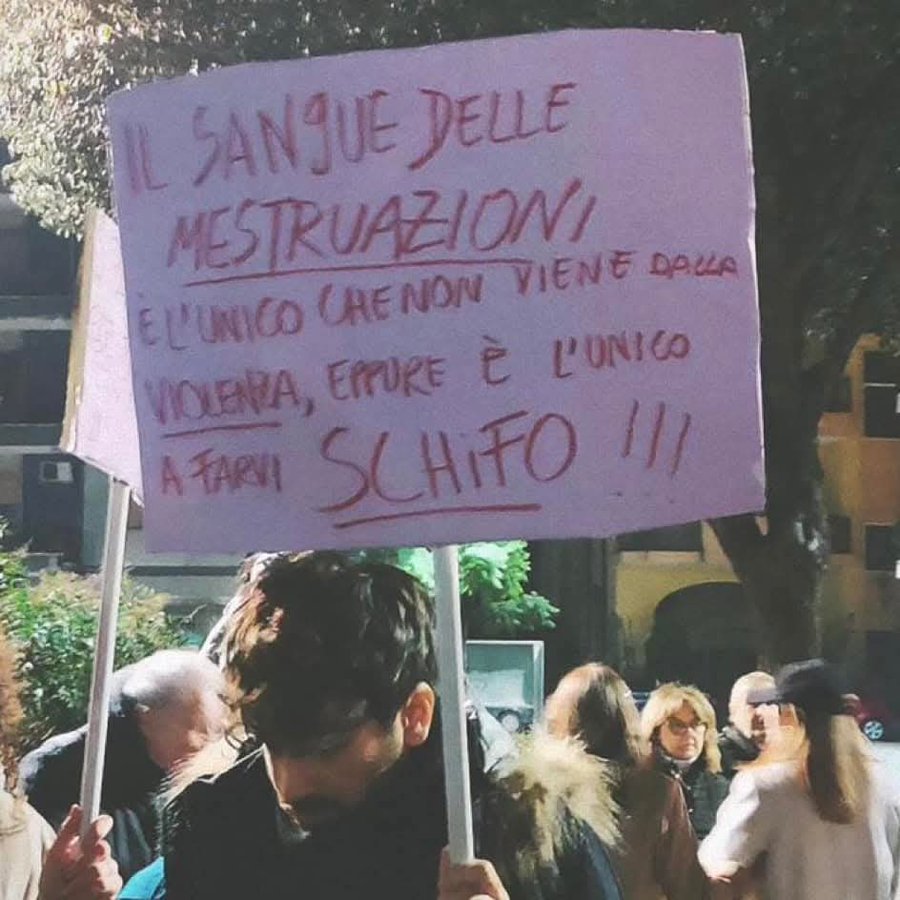 IL SANGUE DELLE
MESTRUAZIONI
È L'UNICO CHE NON VIENE DALLA
VIOLENZA, EPPURE È L'UNICO
A FARVI SCHIFO !!!